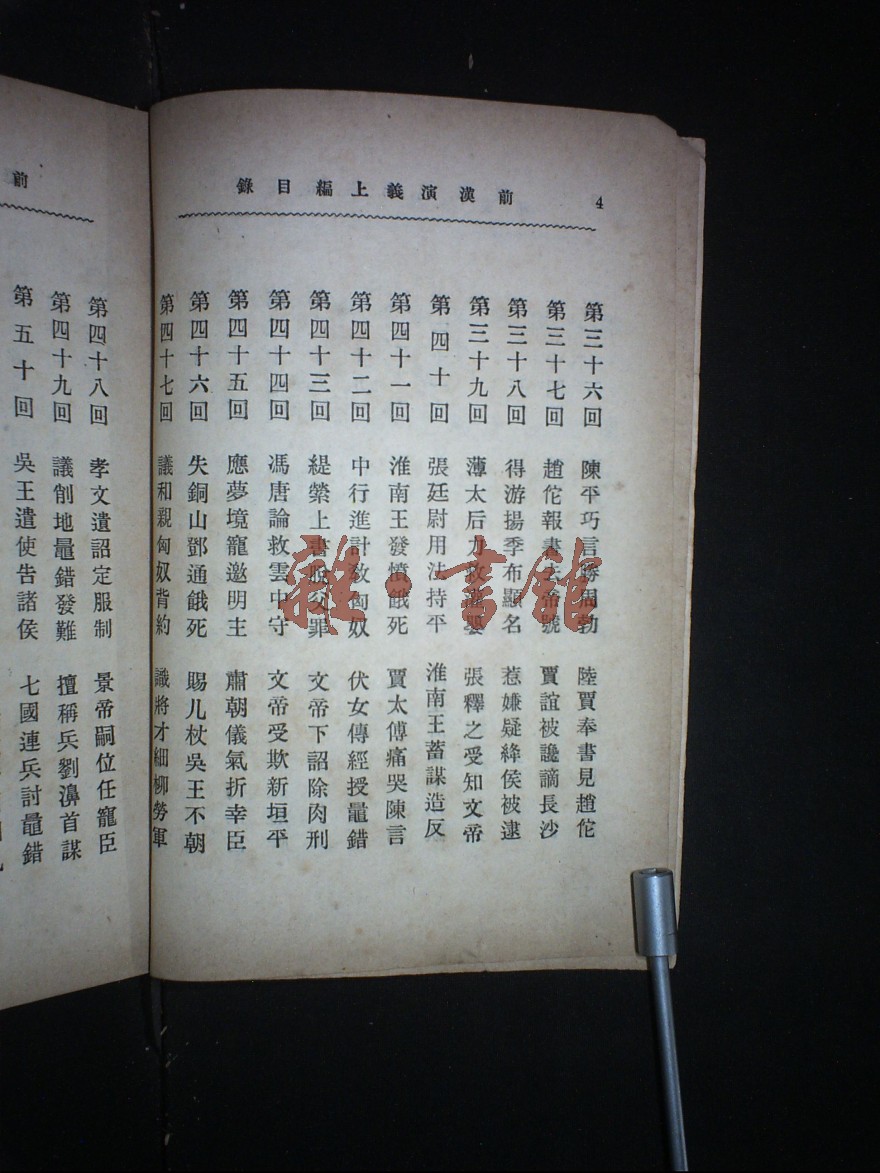 前漢演義上編目錄
4
第三十六回 陳平巧言勝周勃 陸賈奉書見趙佗
第三十七回 趙佗報書去帝號 賈誼被讒謫長沙
第三十八回 得游揚季布顯名 惹嫌疑絳侯被逮
第三十九回 薄太后力救 張釋之受知文帝
第四十回 張廷尉用法持平 淮南王蓄謀造反
第四十一回 淮南王發憤餓死 賈太傅痛哭陳言
第四十二回 中行進計致匈奴 伏女傳經授鼂錯
第四十三回 緹縈上書脫父罪 文帝下詔除肉刑
第四十四回 馮唐論救雲中守 文帝受欺新垣平
第四十五回 應夢境寵邀明主 肅朝儀氣折幸臣
第四十六回 失銅山鄧通餓死 賜几杖吳王不朝
第四十七回 議和親匈奴背約 識將才細柳勞軍
前
第四十八回 孝文遺詔定服制 景帝嗣位任寵臣
第四十九回 議削地鼂錯發難 擅稱兵劉濞首謀
第五十回 吳王遣使告諸侯 七國連兵討鼂錯
雜·書館